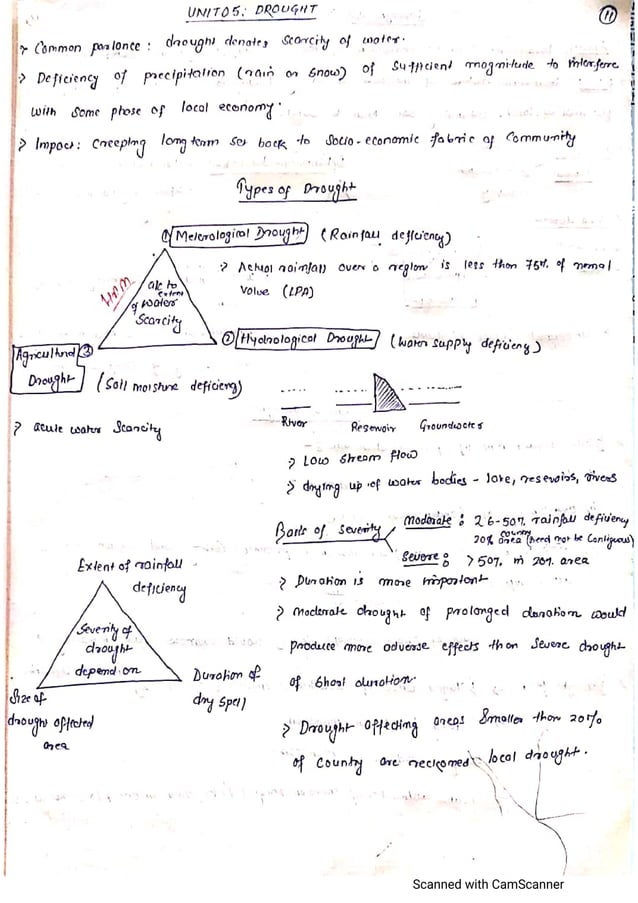 UNIT05: DROUGHT
11
> Common parlance: drought denotes scarcity of water.
> Deficiency of precipitation (rain or snow) of sufficient magnitude to interfere
with some phase of local economy.
> Impact: creeping long term set back to socio-economic fabric of Community
Types of Drought
① Meterological Drought (Rainfall deficiency)
> Actual rainfall over a region is less than 75% of nomal
Value (LPA)
HAM
alc to
extent
of water
Scarcity
② Hydrological Drought (Water supply deficieny)
Agricultural ③
Drought (Soil moisture deficieny)
> acute water Scarcity
River Resevoir Groundwater
> Low stream flow
> drying up of water bodies - lake, reservoirs, rivers
Basis of Severity
Moderate: 26-50% rainfall deficieny
20% country area (need not be Contiguous)
Severe: >50% in 20% area
Extent of rainfall
deficiency
Severity of
drought
depend on
Size of
drought affected
area
Duration of
dry spell
> Duration is more important
> Moderate drought of prolonged duration would
produce more adverse effects than severe drought
of short duration.
> Drought affecting areas smaller than 20%
of Country are reckoned local drought.
Scanned with CamScanner